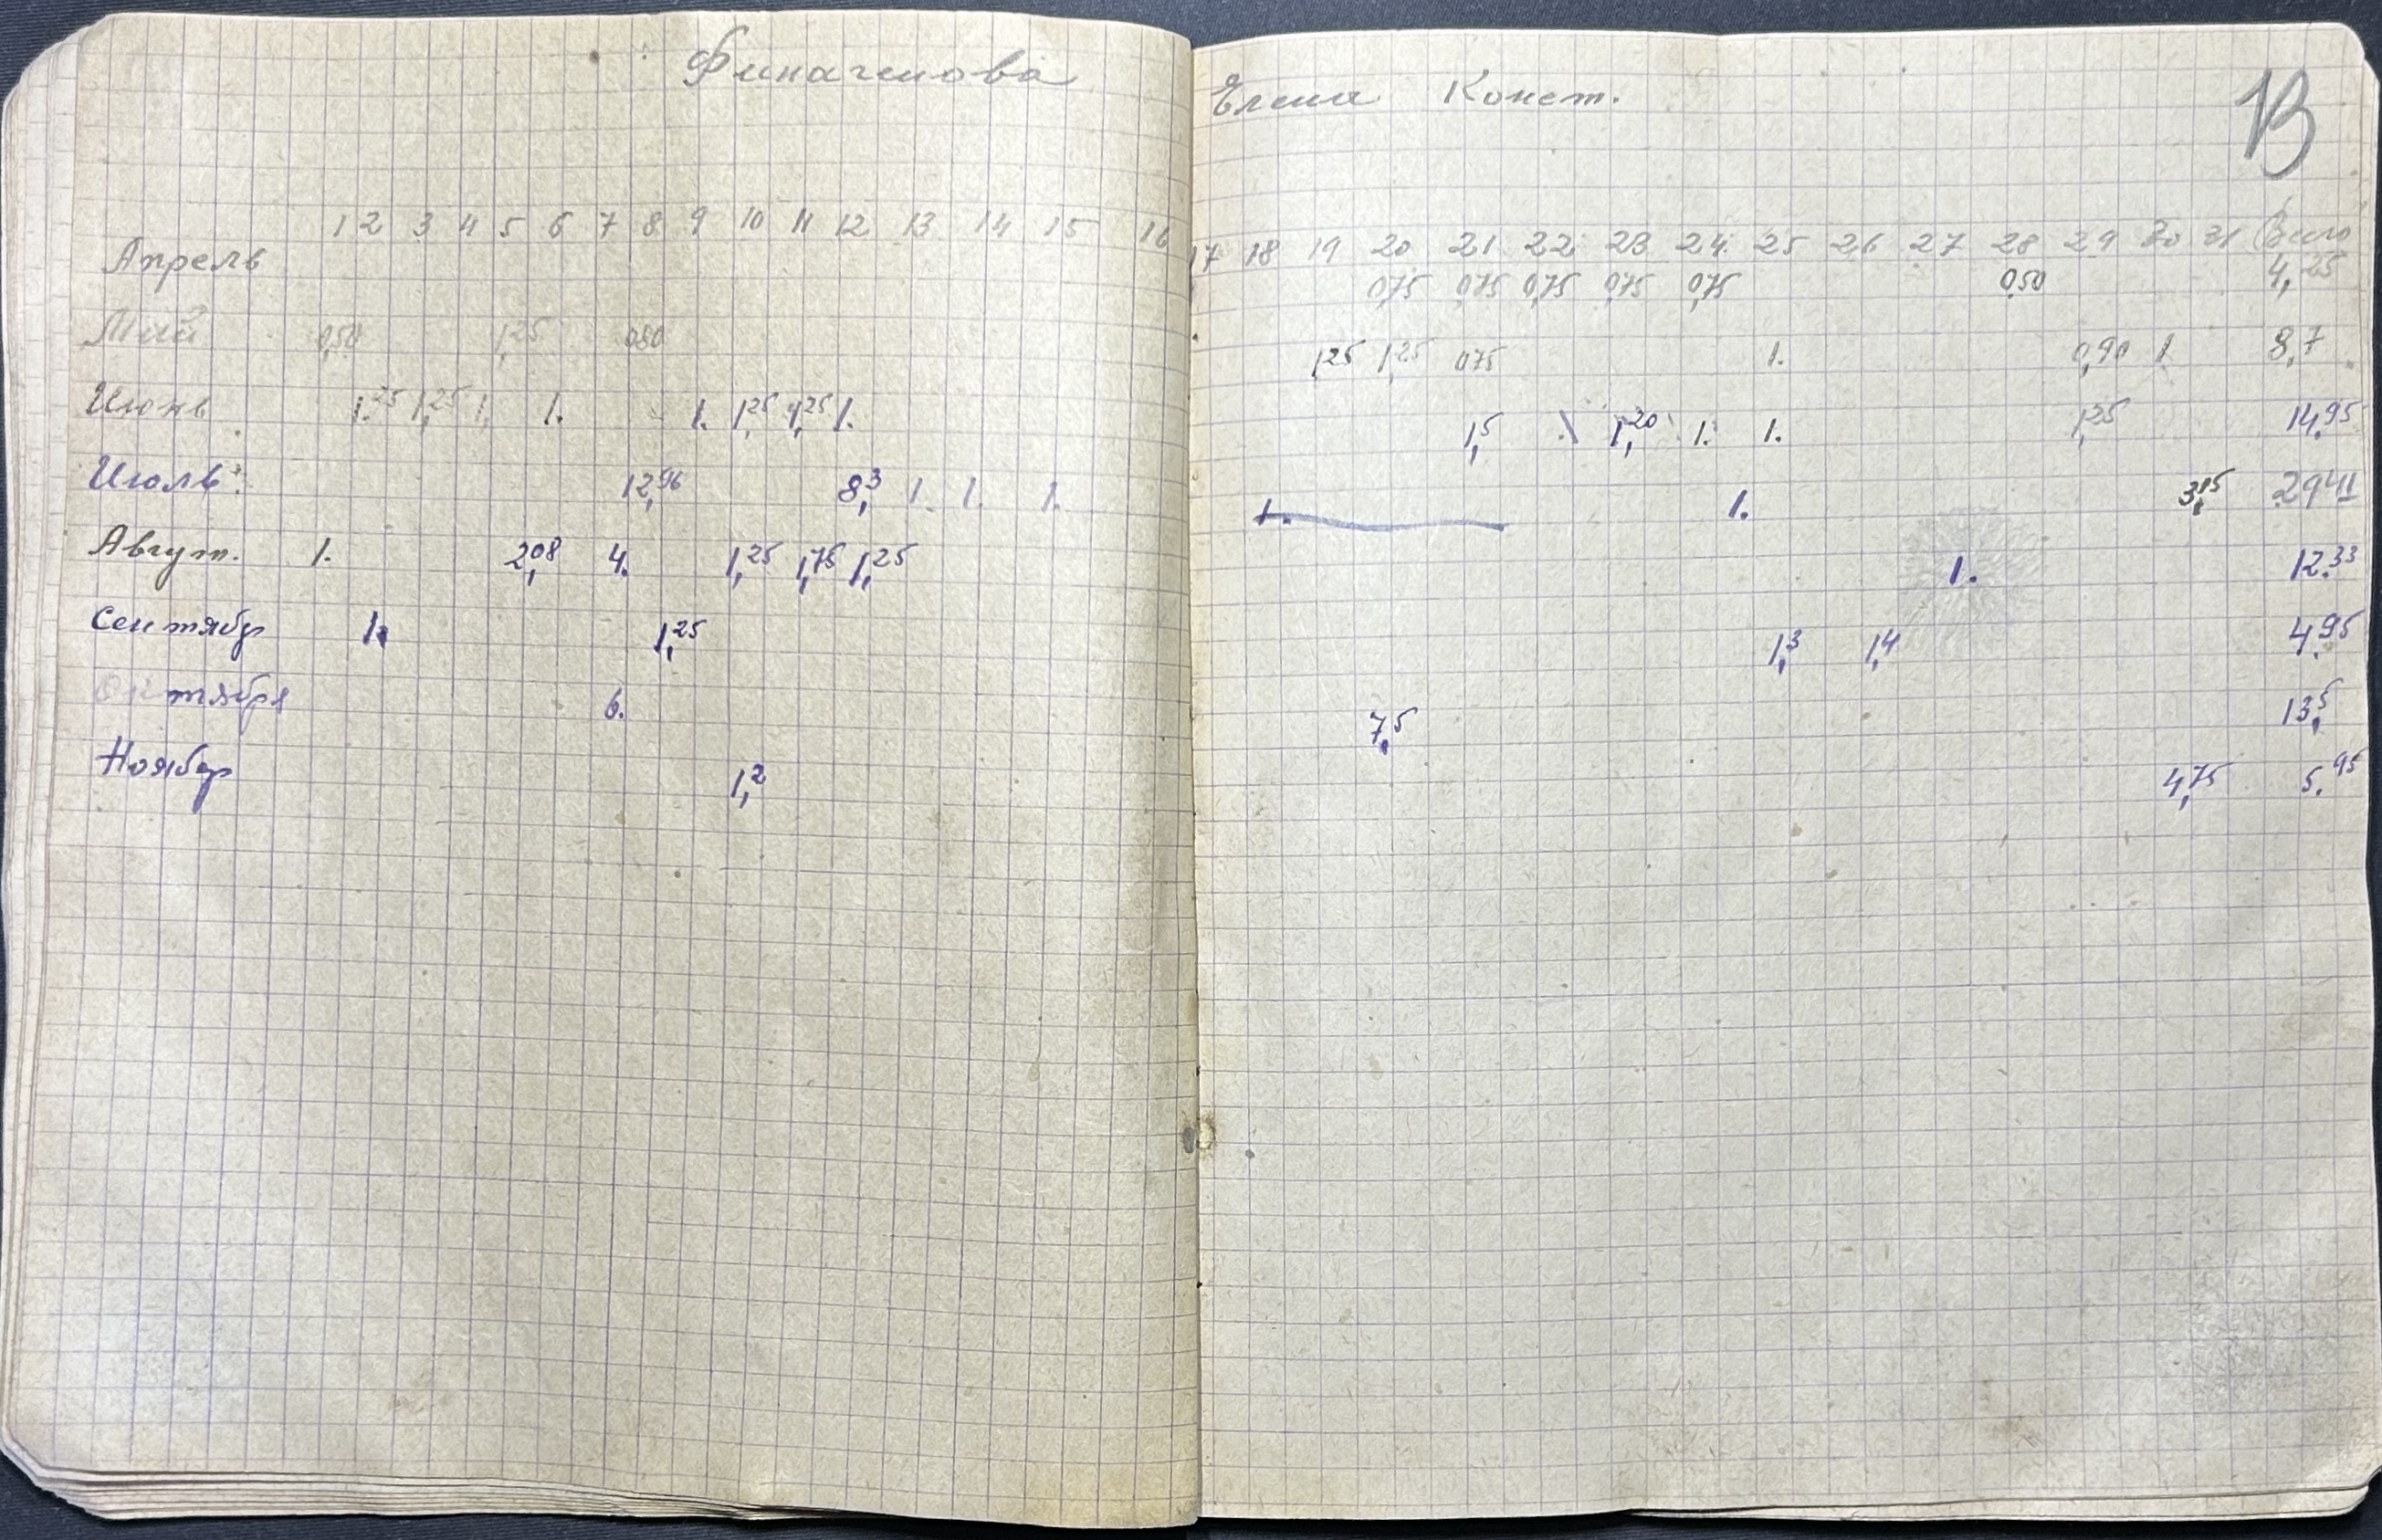 Финагенова Елена Конст. 13
1 2 3 4 5 6 7 8 9 10 11 12 13 14 15 16 17 18 19 20 21 22 23 24 25 26 27 28 29 30 31 Всего
Апрель 0,75 0,75 0,75 0,75 0,75 0,50 4,25
Май 0,50 1,25 080 1,25 1,25 075 1. 0,90 1. 8,7
Июнь 1.25 1,25 1. 1. 1. 1,25 1,25 1. 1,5 \ 1,20 1. 1. 1,25 14,95
Июль: 12,96 8,3 1. 1. 1. 1. 1. 3,15 2941
Август. 1. 2,08 4. 1,25 1,75 1,25 1. 12.33
Сентябр 1. 1,25 1,3 1,4 4.95
Октября 6. 7,5 13,5
Ноябр 1,2 4,75 5.95